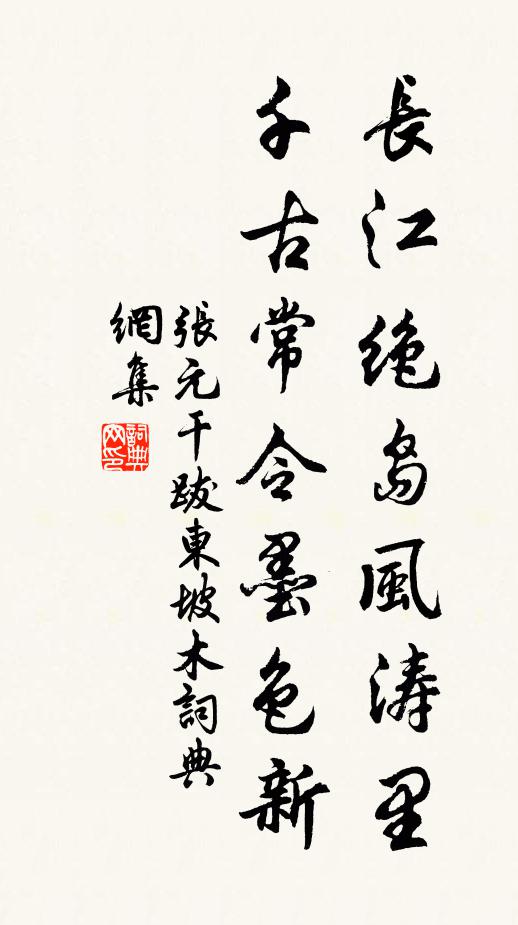 長江絶島風濤里
千古常令墨色新
張元干跋東坡木詞典
網集
詞典
网印